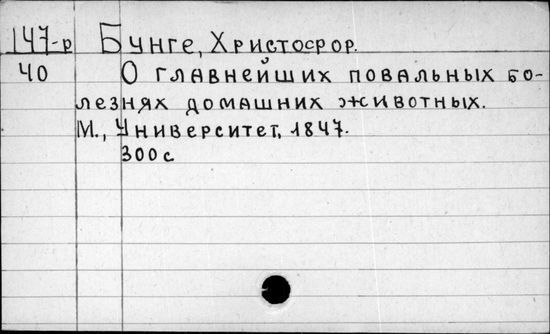 147-р Бунге, Христофор.
40 О главнейших повальных бо-
лезнях домашних животных.
М., Университет, 1847.
300 с